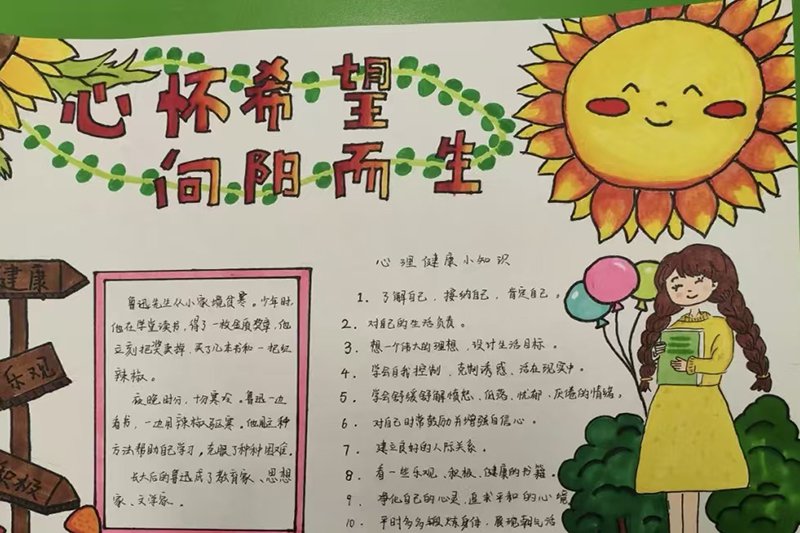 心怀希望
向阳而生
健康
乐观
积极
鲁迅先生从小家境贫寒。少年时,
他在学堂读书,得了一枚金质奖章,他
立刻把奖卖掉,买了几本书和一把红
辣椒。
夜晚时分,十分寒冷。鲁迅一边
看书,一边用辣椒驱寒。他用这种
方法帮助自己学习,克服了种种困难。
长大后的鲁迅成了教育家、思想
家、文学家。
心理健康小知识
1、了解自己,接纳自己,肯定自己。
2、对自己的生活负责。
3、想一个伟大的理想,设计生活目标。
4、学会自我控制,克制诱惑、活在现实中。
5、学会舒缓舒解愤怒、低落、忧郁、厌倦的情绪。
6、对自己时常鼓励并增强自信心。
7、建立良好的人际关系。
8、看一些乐观、积极、健康的书籍。
9、净化自己的心灵,追求平和的心境
10、平时多多锻炼身体,展现朝气活